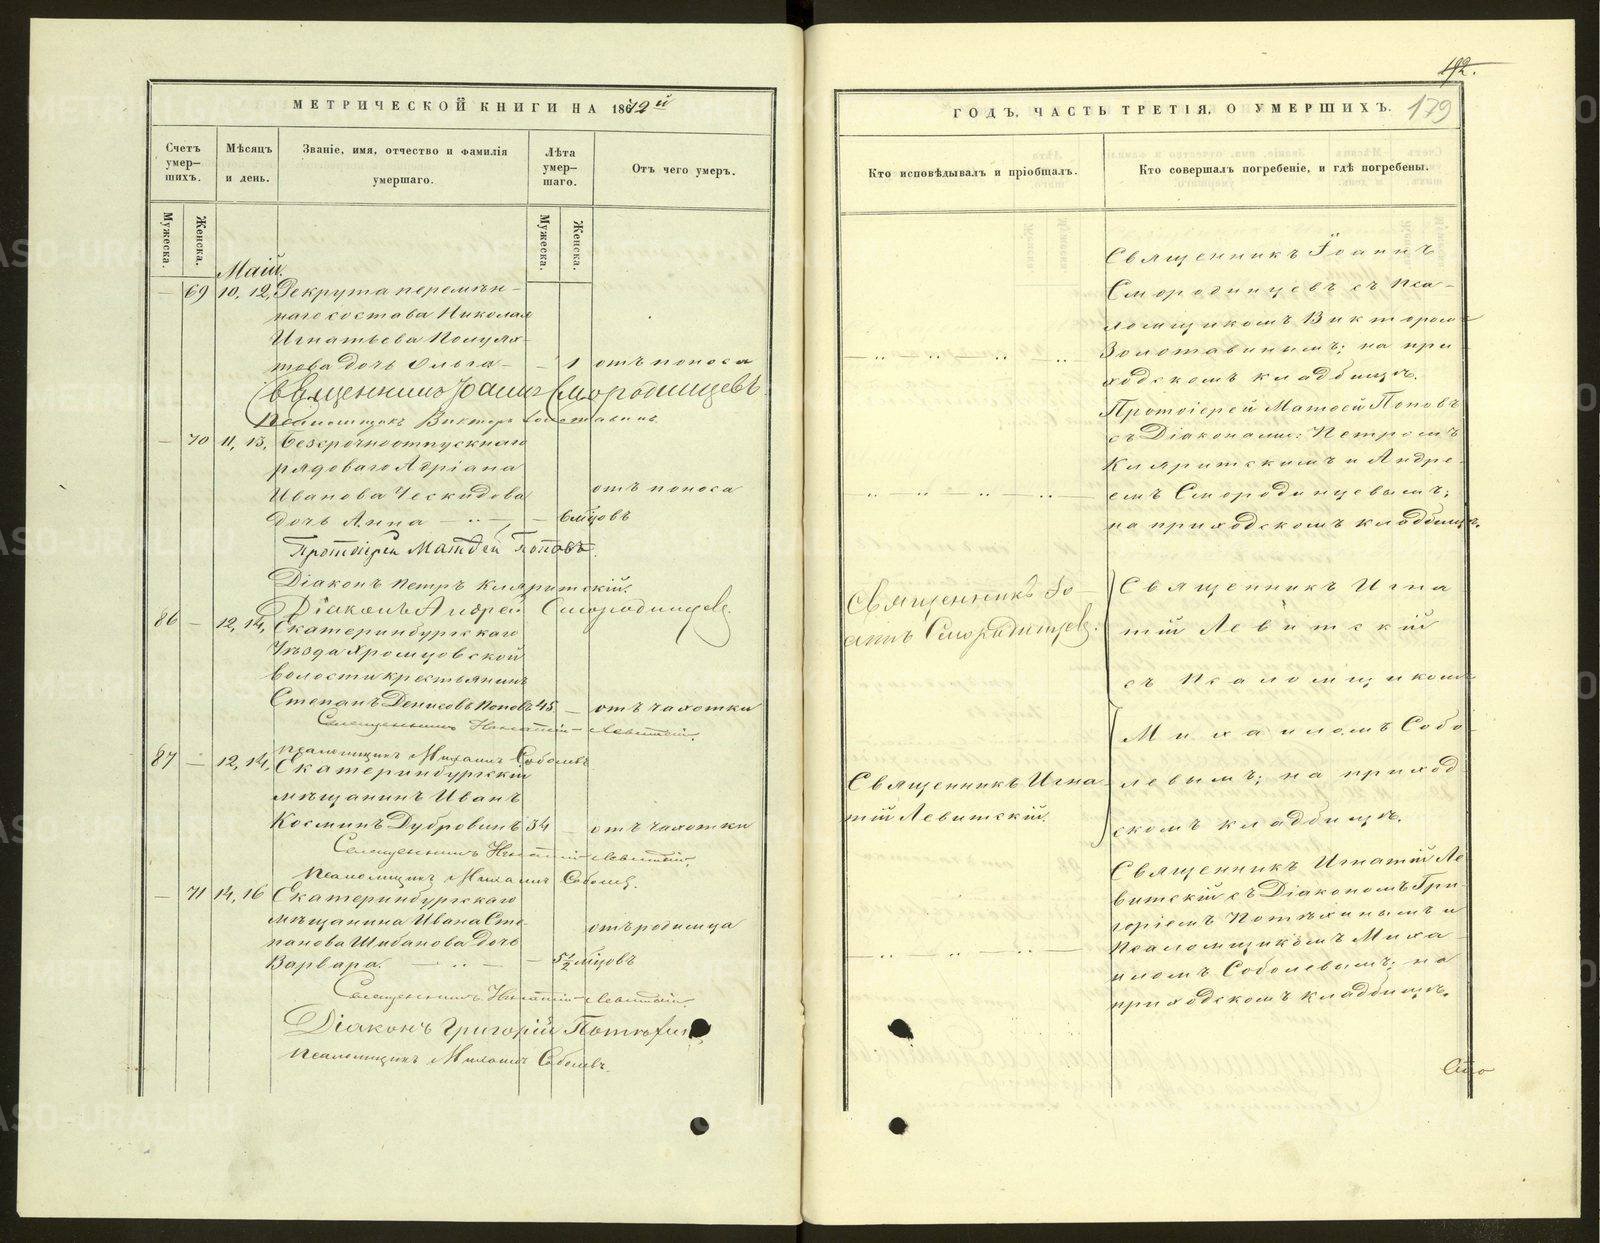 МЕТРИЧЕСКОЙ КНИГИ НА 1872й
Счетъ умер-шихъ.
Мѣсяцъ и день.
Званіе, имя, отчество и фамилія умершаго.
Лѣта умер-шаго.
Отъ чего умеръ.
Мужеска.
Женска.
Мужеска.
Женска.
Май.
— 69 10, 12, Рекрута перемѣн-
наго состава Николая
Игнатьева Полуях-
това дочь Ольга — — 1 отъ поноса
Священникъ Іоаннъ Смородинцевъ
Псаломщикъ Викторъ Золотавинъ.
— 70 11, 13, Безсрочноотпускнаго
рядоваго Адріана
Иванова Ческидова отъ поноса
дочь Анна — „ — 6 мѣцовъ
Протоіерей Матѳей Поповъ.
Діаконъ Петръ Кляритскій.
Діаконъ Андрей Смородинцевъ.
86 — 12, 14, Екатеринбургскаго
Уѣзда Яромцовской
волости крестьянинъ
Степанъ Денисовъ Поповъ 45 — отъ чахотки
Священникъ Игнатій Левитскій.
Псаломщикъ Михаилъ Соболевъ
87 — 12, 14, Екатеринбургскій
мѣщанинъ Иванъ
Косминъ Дубровинъ 34 — отъ чахотки
Священникъ Игнатій Левитскій.
Псаломщикъ Михаилъ Соболев.
— 71 14, 16 Екатеринбургскаго
мѣщанина Ивана Сте-
панова Шибанова дочь отъ родимца
Варвара. — „ — — 5½ мѣцовъ
Священникъ Игнатій Левитскій
Діаконъ Григорій Потѣхинъ
Псаломщикъ Михаилъ Соболевъ.
192.
ГОДЪ, ЧАСТЬ ТРЕТІЯ, О УМЕРШИХЪ. 179
Кто исповѣдывалъ и пріобщалъ.
Кто совершалъ погребеніе, и гдѣ погребены.
Священникъ Іоаннъ
Смородинцевъ съ Пса-
ломщикомъ Викторомъ
Золотавинымъ; на при-
ходскомъ кладбищѣ.
Протоіерей Матѳей Поповъ
съ Діаконами: Петромъ
Кляритскимъ и Андре-
емъ Смородинцевымъ;
на приходскомъ кладбищѣ.
Священникъ Іо-
аннъ Смородинцевъ.
Священникъ Игна
тій Левитскій
съ Псаломщикомъ
Михаиломъ Собо-
левымъ; на приход
скомъ кладбищѣ.
Священникъ Игна-
тій Левитскій.
Священникъ Игнатій Ле-
витскій съ Діакономъ Гри-
горіемъ Потѣхинымъ и
Псаломщикомъ Миха-
иломъ Соболевымъ; на
приходскомъ кладбищѣ.
METRIKI.GASO-URAL.RU